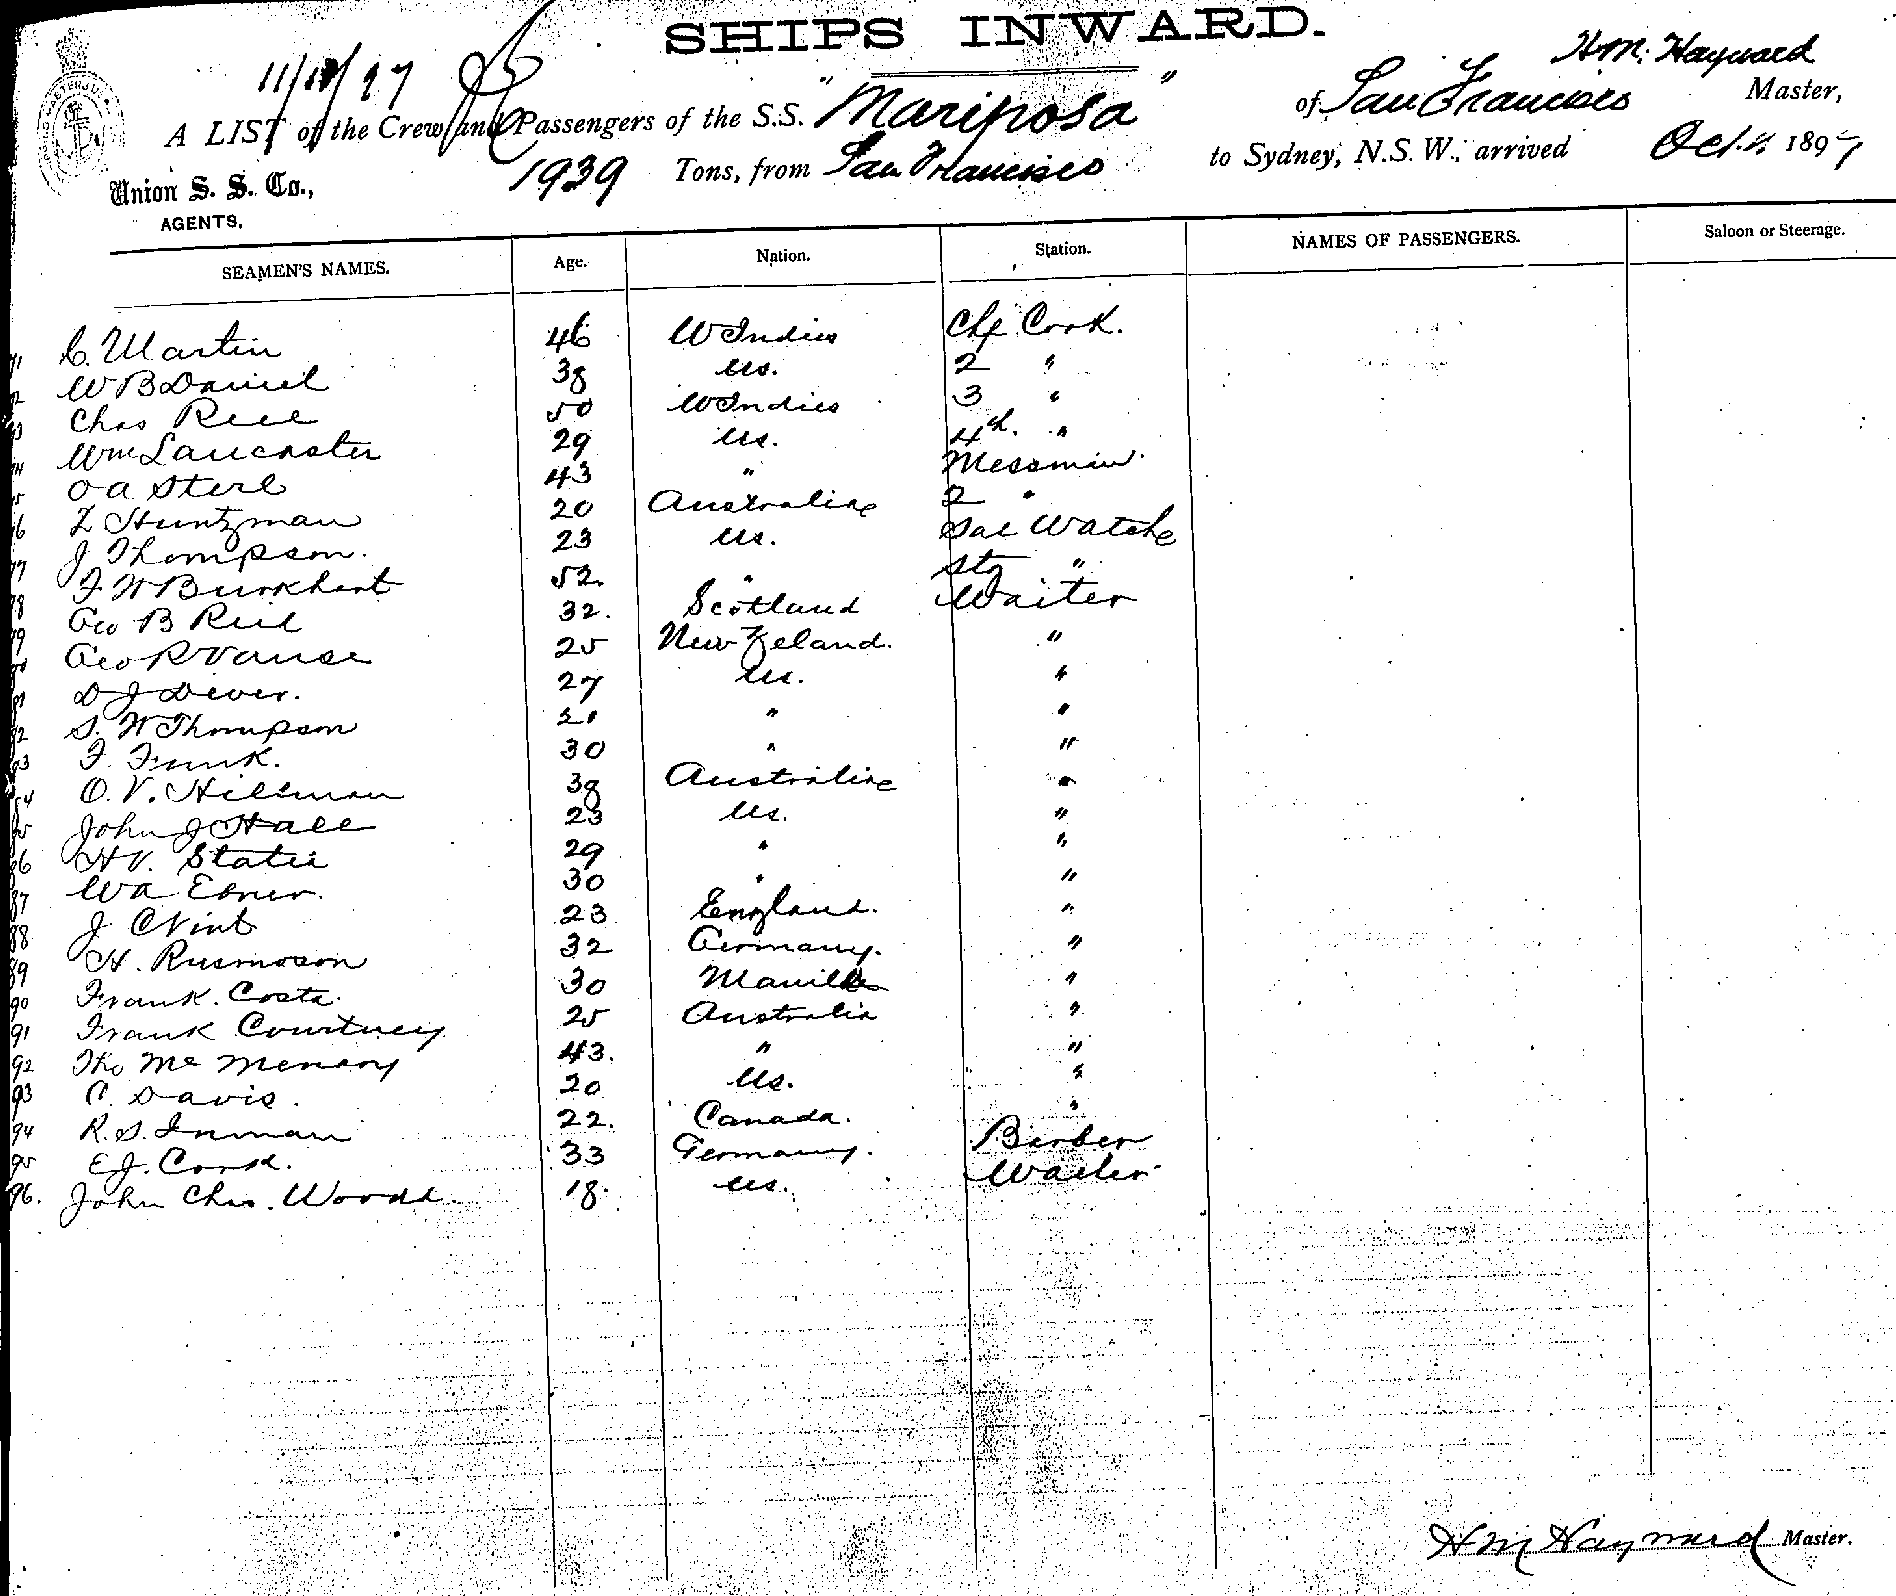 SHIPS INWARD.
11/10/97
H.M. Hayward
A LIST of the Crew and Passengers of the S.S. "Mariposa" of San Francisco Master,
1939 Tons, from San Francisco to Sydney, N.S.W., arrived Oct. 11 1897
Union S. S. Co.,
AGENTS.
SEAMEN'S NAMES. Age. Nation. Station. NAMES OF PASSENGERS. Saloon or Steerage.
71 C. Martin 46 W Indies Chf Cook.
72 W B Daniel 38 U.S. 2 "
73 Chas Reel 50 W Indies 3 "
74 Wm Lancaster 29 U.S. 4th. "
75 O A Sterl 43 " Messman
76 Z Huntzman 20 Australia 2 "
77 J Thompson. 23 U.S. Sal Watche
78 J. W Burkhart 52. " Stg "
79 Geo B Reid 32. Scotland Waiter
80 Geo R Vanse 25 New Zeland. "
81 D J Dever. 27 U.S. "
82 S. W Thompson 21 " "
83 F. Funk. 30 " "
84 O. V. Hillman 38 Australia "
85 John J Hall 23 U.S. "
86 H V. Slatei 29 " "
87 W A Ebner. 30 " "
88 J C Nint 23 England. "
89 H. Rusmoson 32 Germany. "
90 Frank. Costa. 30 Manilla "
91 Frank Courtney 25 Australia "
92 Tho Mc Memeny 43. " "
93 C. Davis. 20 U.S. "
94 R. S. Inman 22. Canada. "
95 E J. Cook. 33 Germany. Barber
96. John Chas. Woodd. 18. U.S. Waiter
H M Hayward Master.